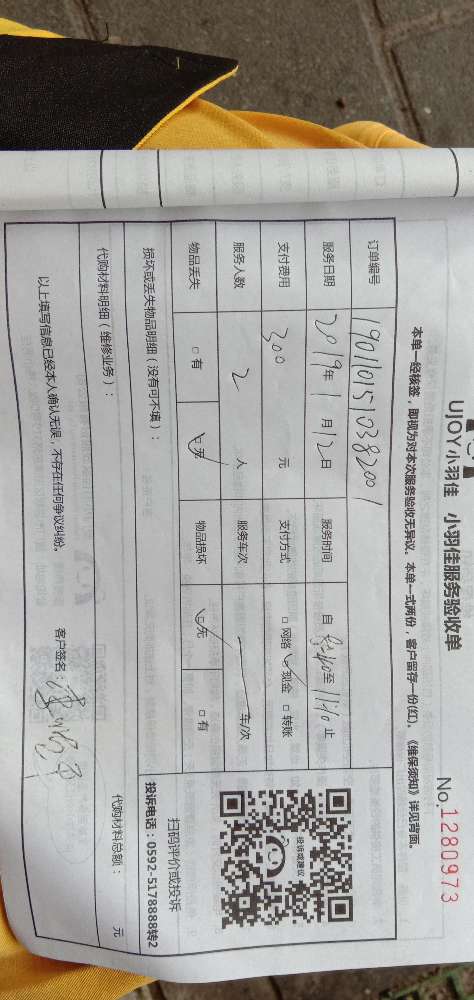 UJOY小羽佳 小羽佳服务验收单
No.1280973
本单一经核签，即视为对本次服务验收无异议。本单一式两份，客户留存一份(红)。《维保须知》详见背面。
订单编号 1901101510382001
服务日期 2019年1月12日 服务时间 自 至 止
支付费用 300 元 支付方式 □网络 ☑现金 □转账
服务人数 2 人 服务车次 车/次
物品丢失 □有 ☑无 物品损坏 ☑无 □有
投诉或建议
扫码评价或投诉
损坏或丢失物品明细（没有可不填）：
投诉电话：0592-5178888转2
代购材料明细（维修业务）：
代购材料总额： 元
以上填写信息已经本人确认无误，不存在任何争议纠纷。
客户签名：